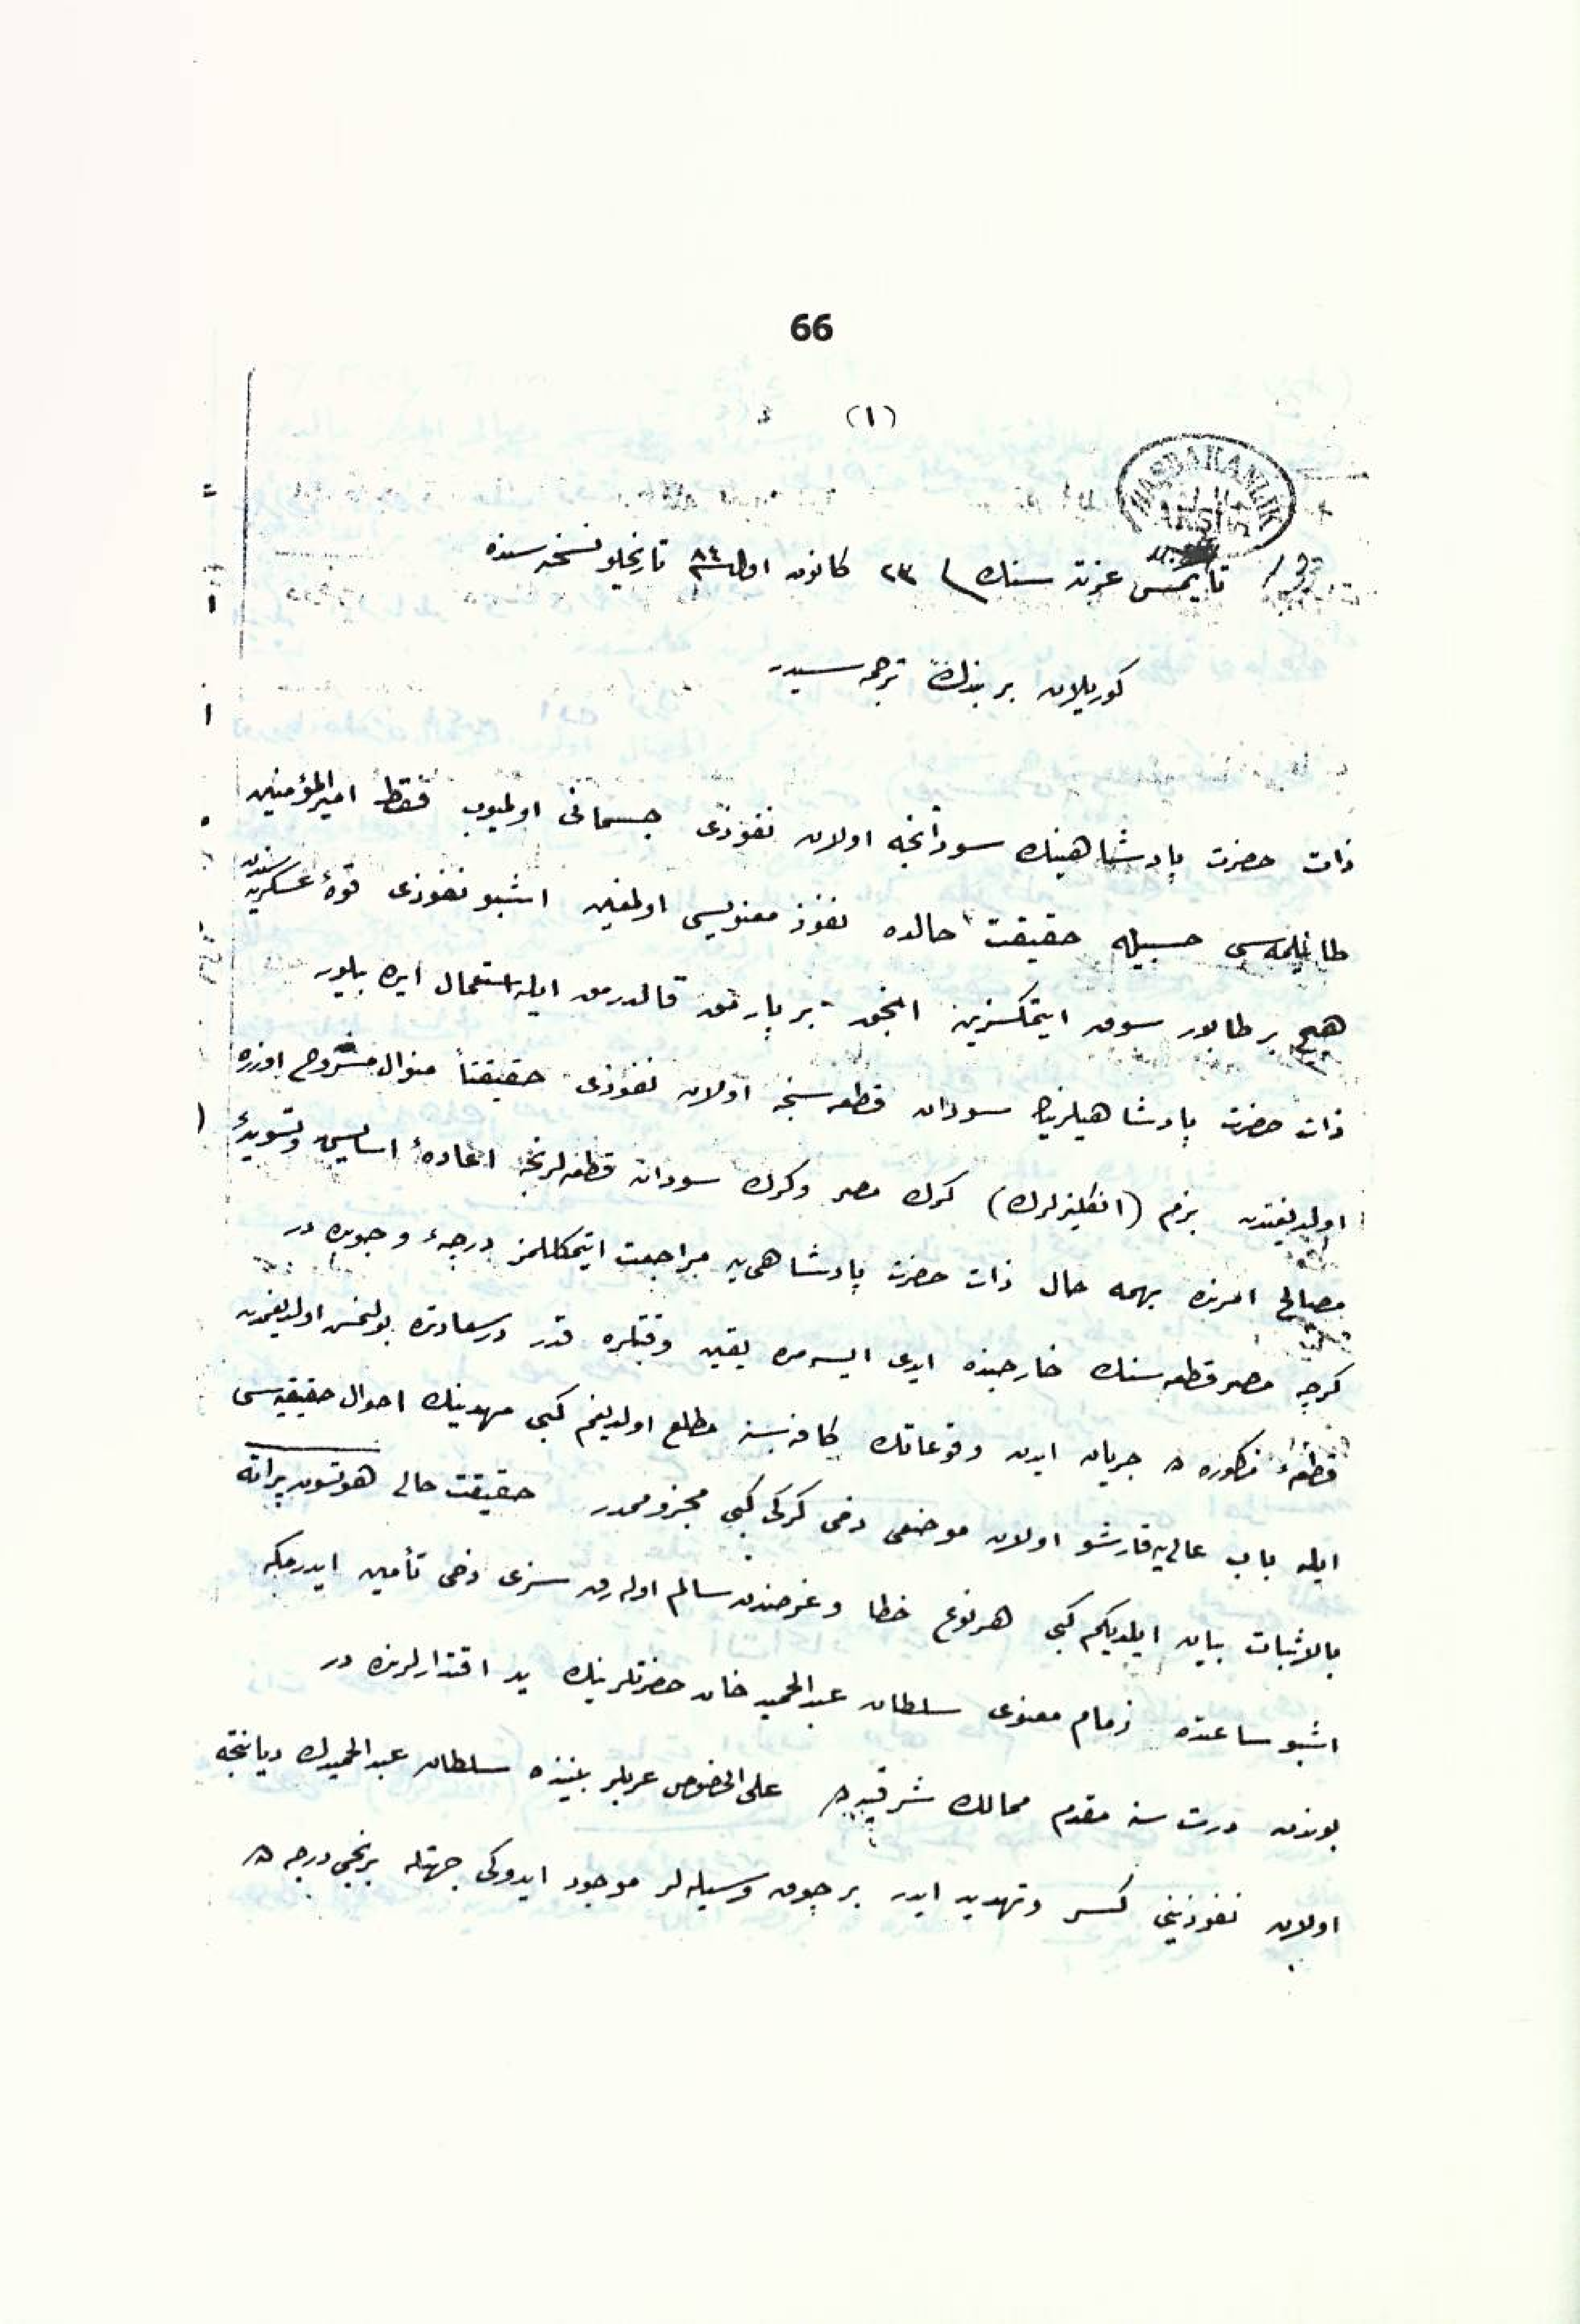 66
(١)
BAŞBAKANLIK
ARŞİVİ
تايمس غزته سنك ٢٣ كانون اول ٨٤ تاريخلو نسخه سنده
كوريلان بر بندك ترجمه سيدر
ذات حضرت پادشاهينك سودانجه اولان نفوذى جسمانى اولميوب فقط اميرالمؤمنين
طانيلمه سى حسبيله حقيقت حالده نفوذ معنويسى اولمغين اشبو نفوذى قوۀ عسكريه سندن
هيچ بر طابور سوق ايتمكسزين انجق بر پارمق قالدرمق ايله استعمال ايده بيلور
ذات حضرت پادشاهيلرينك سودان قطعه سنجه اولان نفوذى حقيقتاً منوال مشروح اوزره
اولديغندن بزم (انكليزلرك) كرك مصر وكرك سودان قطعه لرنجه اعادۀ اسايش وتسويۀ
مصالح امرنده بهمه حال ذات حضرت پادشاهى يه مراجعت ايتمكلكمز درجۀ وجوبده در
كرچه مصر قطعه سنك خارجنده ايدى ايسه مده يقين وقتلره قدر درسعادتده بولنمش اولديغمدن
قطعۀ مذكوره ده جريان ايدن وقوعاتك كافه سنه مطلع اولديغم كبى مهدينك احوال حقيقيه سى
ايله باب عالى يه قارشو اولان موضعى دخى كركى كبى مجزوممدر حقيقت حالى هر كونه
بالاثبات بيان ايلديكم كبى هر نوع خطا وغرضدن سالم اوله رق سزى دخى تأمين ايدرمكه
اشبو ساعتده زمام معنوى سلطان عبدالحميد خان حضرتلرينك يد اقتدارلرنده در
بوندن درت سنه مقدم ممالك شرقيه ده على الخصوص عربلر بيننده سلطان عبدالحميدك ديانتجه
اولان نفوذينى كسر وتهديد ايدر بر چوق وسيله لر موجود ايدوكى جهتله برنجى درجه ده